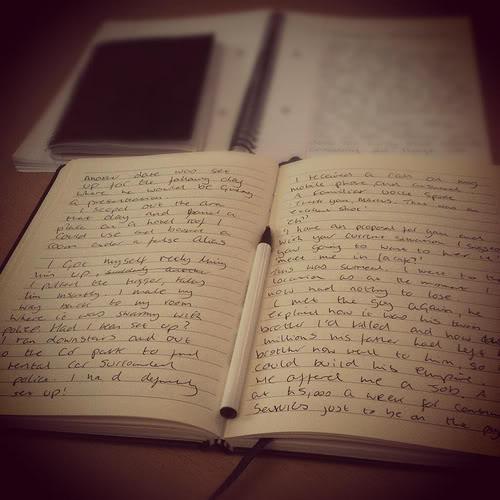 Another date was set
up for the following day
where he would be giving
a presentation.
I scoped out the area
that day and found a
place on a hotel roof I
could use and booked a
room under a false alias
I got myself ready lining
him up, suddenly another
I pulled the trigger, killed
him instantly. I made my
way back to my room
where it was swarming with
police. Had I been set up?
I ran downstairs and out
to the car park to find
rental car surrounded
police. I had definitely
set up!
I received a call on my
mobile phone and answered
A familiar voice spoke
"Thank you, Marcus. That was
excellent shot."
"Eh"
"I have an proposal for you
with your current situation. I suggest
you going to want to hear it
meet me in
This was surreal. I went to the
location as at the moment I
now had nothing to lose.
I met the guy again, he
explained how it was his twin
brother I'd killed and how the
millions his father had left
brother now went to him, so
could build his empire.
He offered me a job. A
at £5,000 a week for
services just to be on the pay